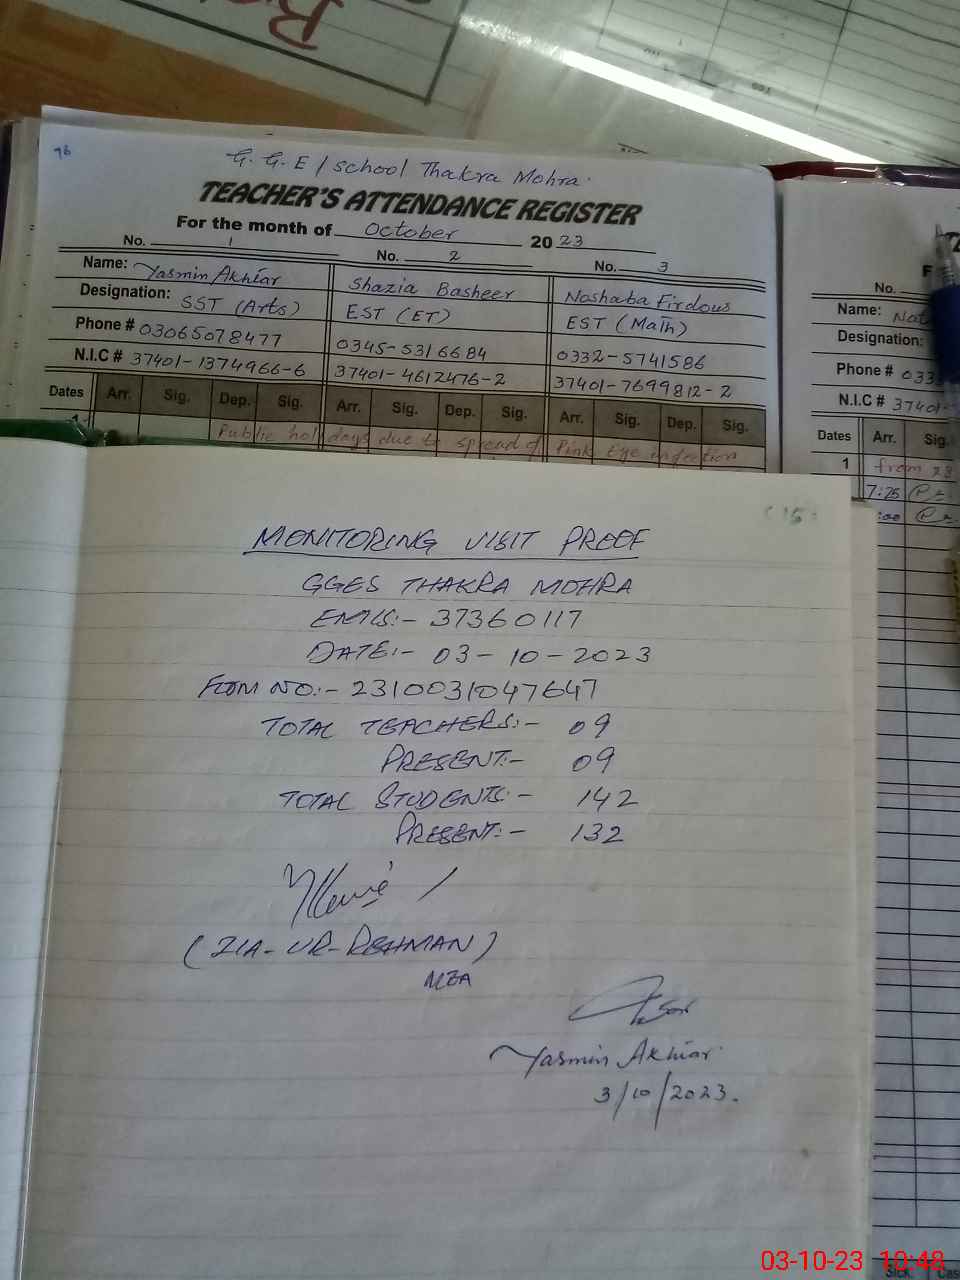 96
G. G. E / school Thakra Mohra.
TEACHER'S ATTENDANCE REGISTER
For the month of October 2023
No. 1 No. 2 No. 3
Name: Yasmin Akhtar Shazia Basheer Noshaba Firdous
Designation: SST (Arts) EST (ET) EST (Math)
Phone # 03065078477 0345-5316684 0332-5741586
N.I.C # 37401-1374966-6 37401-4612476-2 37401-7699812-2
Dates Arr. Sig. Dep. Sig. Arr. Sig. Dep. Sig. Arr. Sig. Dep. Sig.
1 Public holidays due to spread of Pink Eye infection
No.
Name:
Designation:
Phone # 033
N.I.C # 37401-
Dates Arr. Sig.
1 from 28
7:25
:00
MONITORING VISIT PROOF
GGES THAKRA MOHRA
EMIS:- 37360117
DATE:- 03-10-2023
FORM NO:- 2310031047647
TOTAL TEACHERS:- 09
PRESENT:- 09
TOTAL STUDENTS:- 142
PRESENT:- 132
(ZIA-UR-REHMAN)
MEA
Yasmin Akhtar
3/10/2023.
Sick.
03-10-23 10:48